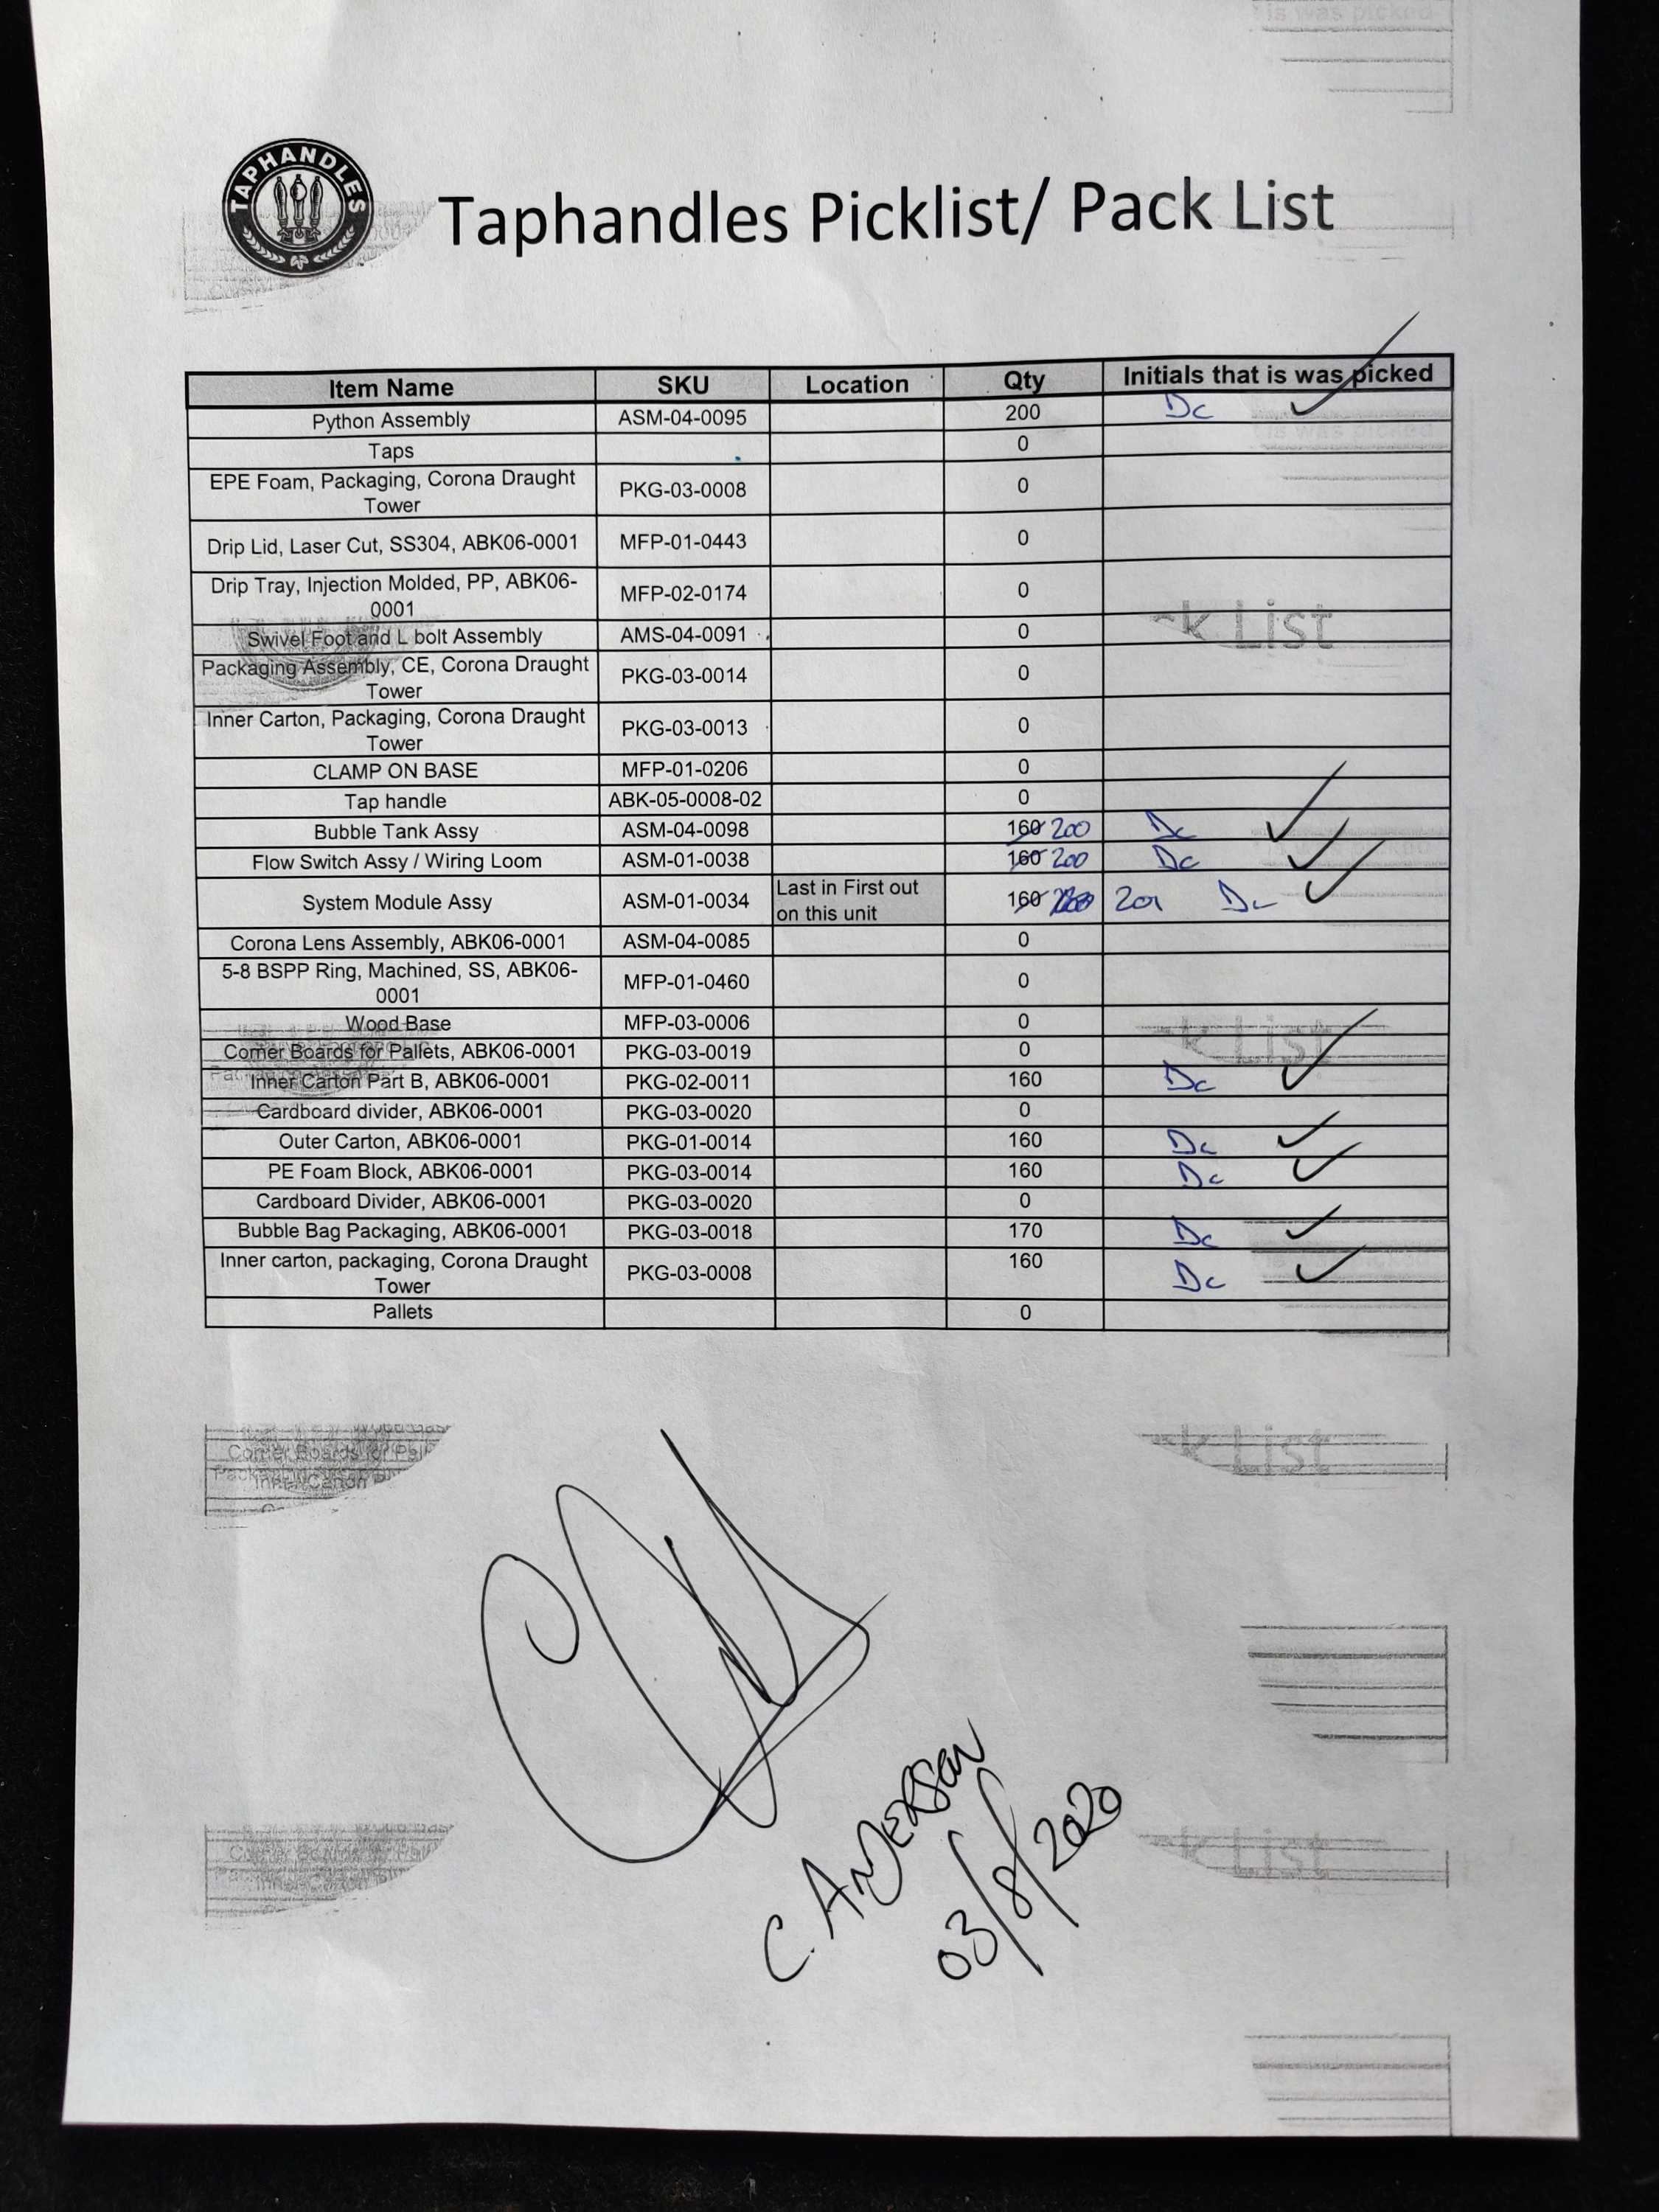 TAPHANDLES
Taphandles Picklist/ Pack List
Item Name SKU Location Qty Initials that is was picked
Python Assembly ASM-04-0095 200 Dc ✓
Taps 0
EPE Foam, Packaging, Corona Draught
Tower PKG-03-0008 0
Drip Lid, Laser Cut, SS304, ABK06-0001 MFP-01-0443 0
Drip Tray, Injection Molded, PP, ABK06-
0001 MFP-02-0174 0
Swivel Foot and L bolt Assembly AMS-04-0091 0
Packaging Assembly, CE, Corona Draught
Tower PKG-03-0014 0
Inner Carton, Packaging, Corona Draught
Tower PKG-03-0013 0
CLAMP ON BASE MFP-01-0206 0
Tap handle ABK-05-0008-02 0
Bubble Tank Assy ASM-04-0098 160 200 Dc ✓
Flow Switch Assy / Wiring Loom ASM-01-0038 160 200 Dc ✓
System Module Assy ASM-01-0034 Last in First out
on this unit 160 201 Dc ✓
Corona Lens Assembly, ABK06-0001 ASM-04-0085 0
5-8 BSPP Ring, Machined, SS, ABK06-
0001 MFP-01-0460 0
Wood Base MFP-03-0006 0
Corner Boards for Pallets, ABK06-0001 PKG-03-0019 0
Inner Carton Part B, ABK06-0001 PKG-02-0011 160 Dc ✓
Cardboard divider, ABK06-0001 PKG-03-0020 0
Outer Carton, ABK06-0001 PKG-01-0014 160 Dc ✓
PE Foam Block, ABK06-0001 PKG-03-0014 160 Dc ✓
Cardboard Divider, ABK06-0001 PKG-03-0020 0
Bubble Bag Packaging, ABK06-0001 PKG-03-0018 170 Dc ✓
Inner carton, packaging, Corona Draught
Tower PKG-03-0008 160 Dc ✓
Pallets 0
C. ANDERSON
03/8/2020